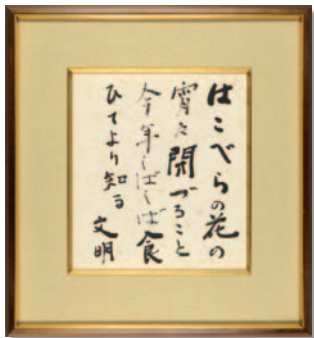 はこべらの花の
宵々閉づること
今年しばしば食
ひてより知る
文明